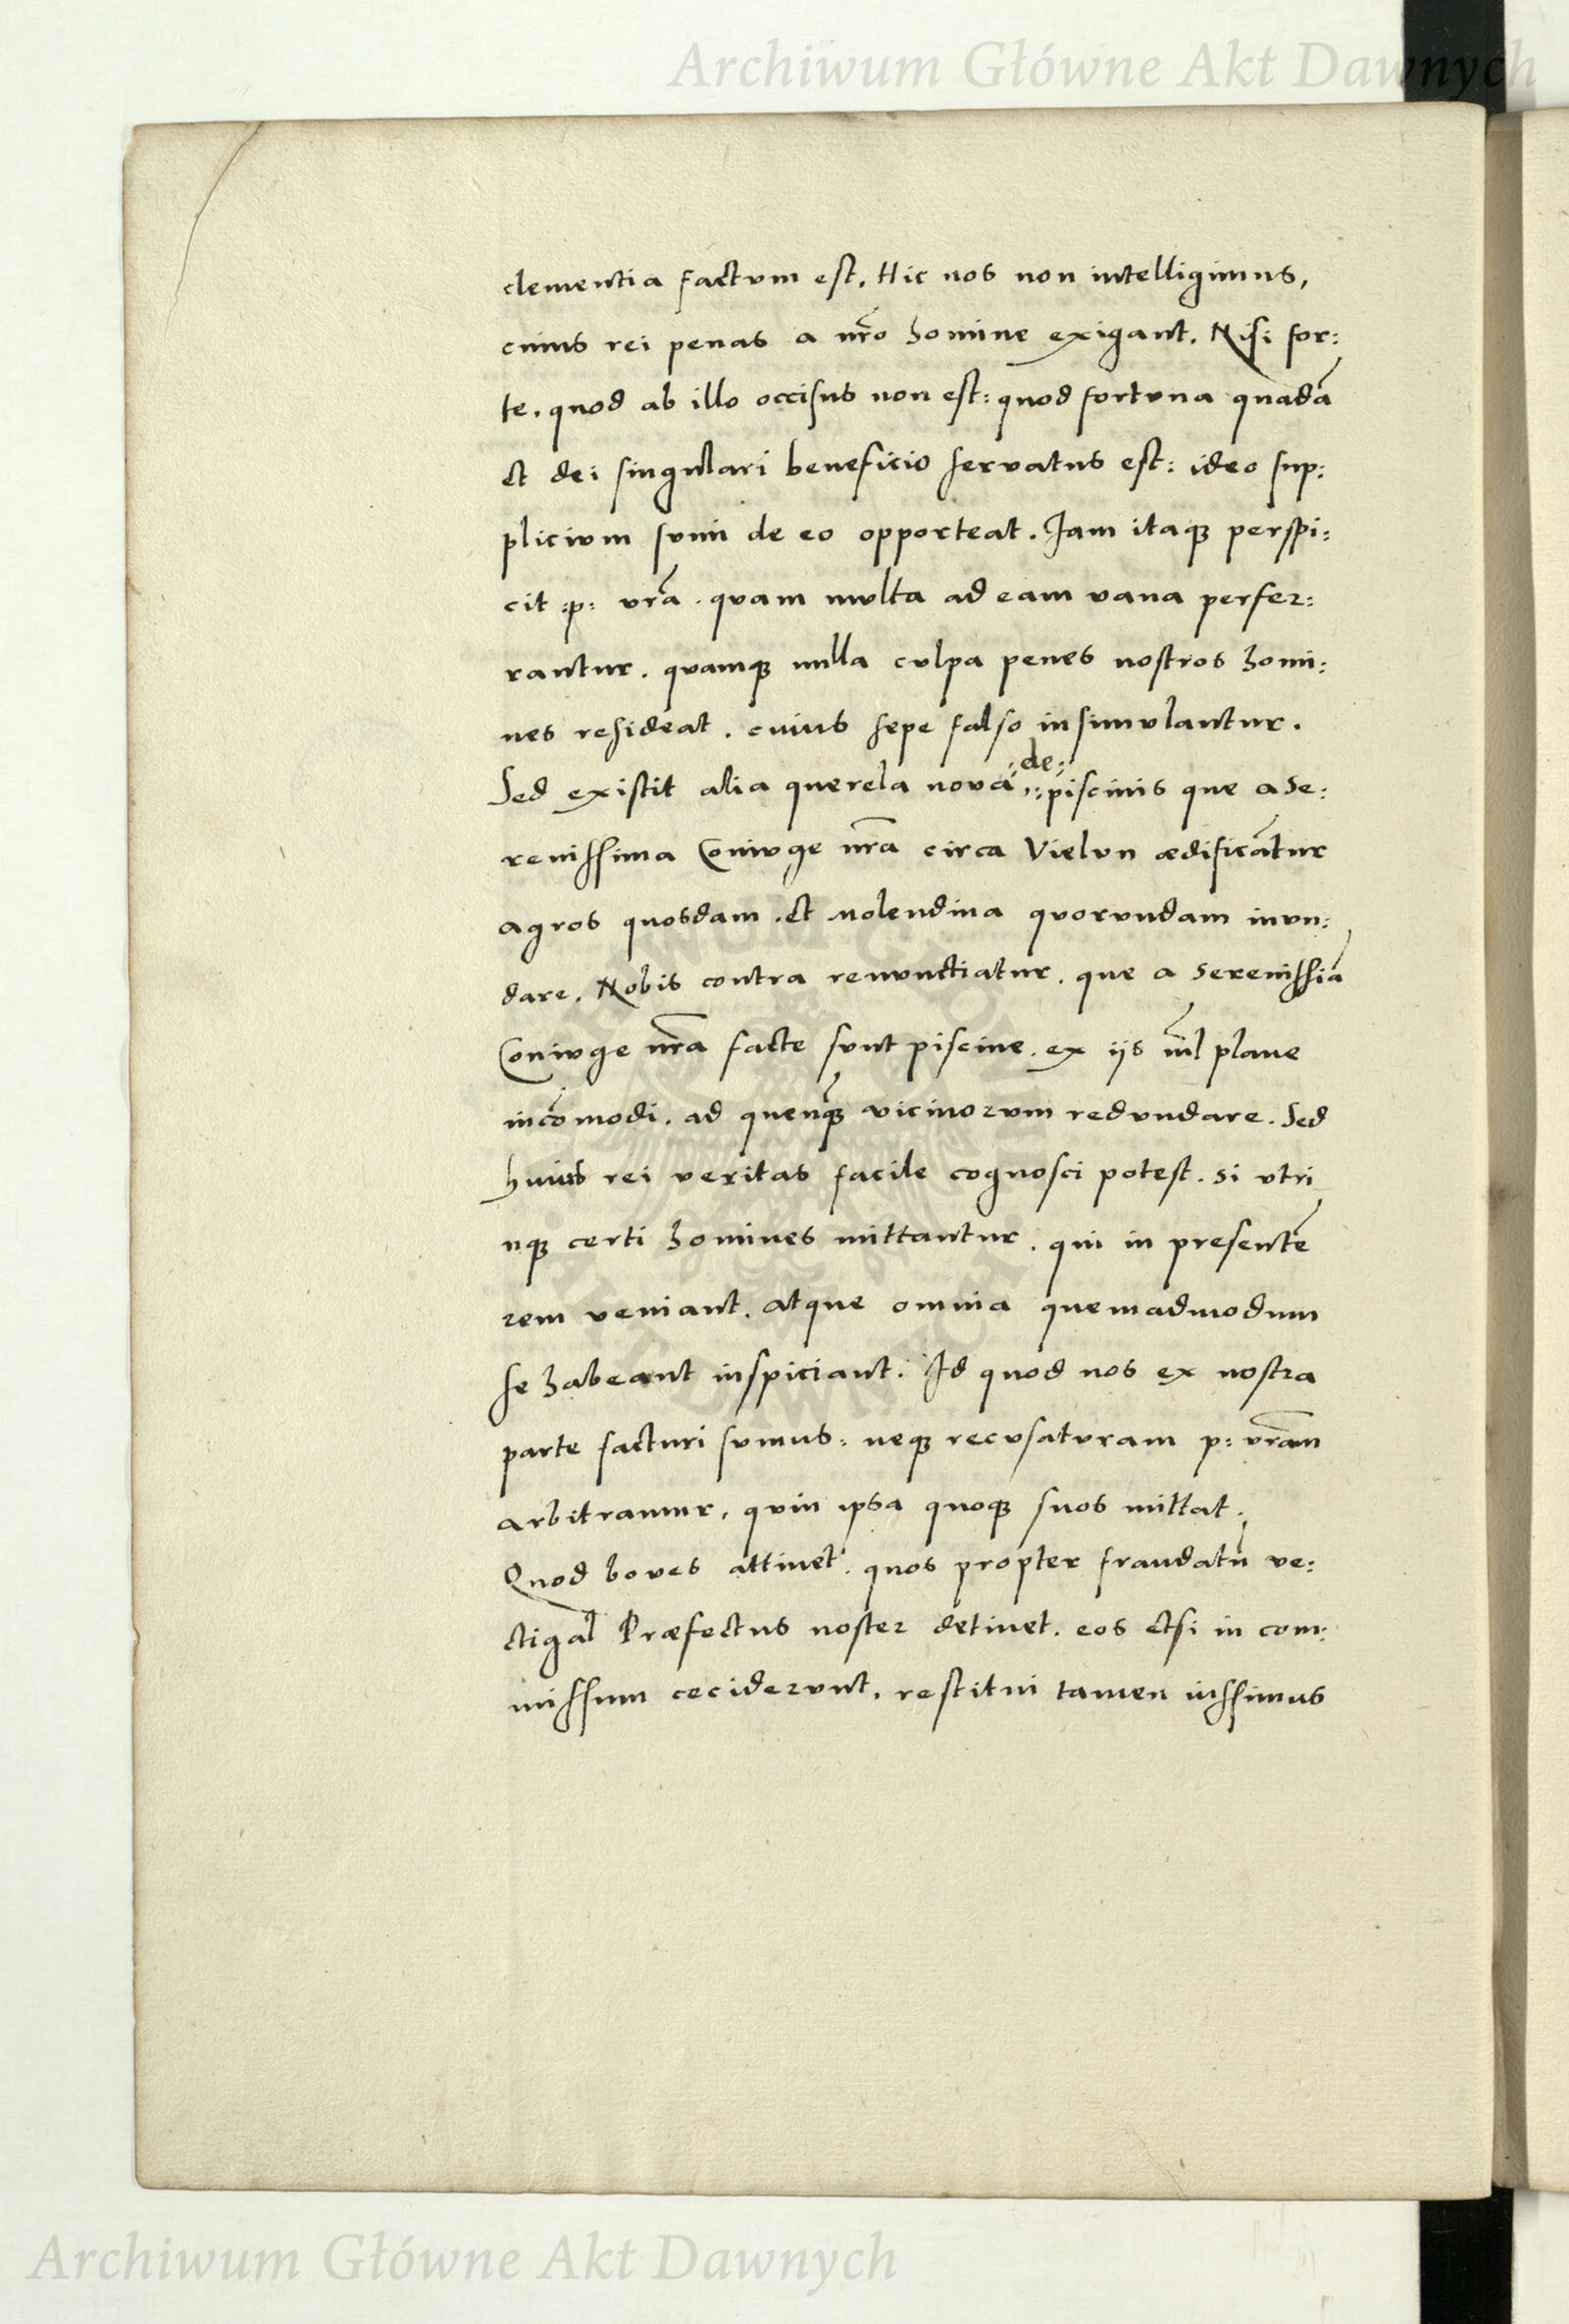 Archiwum Główne Akt Dawnych
clementia factum est, Hic nos non intelligimus,
cuius rei penas a nr̃o homine exigant. Nisi for:
te, quod ab illo occisus non est: quod fortuna quadã
et dei singulari beneficio servatus est: ideo sup:
plicium sumi de eo opporteat. Jam itaqꝫ perspi:
cit :p: vr̃a. quam multa ad eam vana perfer:
rantur. quamqꝫ nulla culpa penes nostros homi:
nes resideat. cuius sepe falso insimulantur.
:de:
Sed existit alia querela nova ,,: piscinis que a Se:
renissima Coniuge nr̃a circa Vielun ædificãtur
agros quosdam. et molendina quorundam inun:
dare. Nobis contra renunctiatur. que a Serenissiã
Coniuge nr̃a facte sunt piscine. ex iis nil̃ plane
incõmodi. ad quenq̃ꝫ vicinorum redundare. Sed
huius rei veritas facile cognosci potest. si utri
nqꝫ certi homines mittantur. qui in presentẽ
rem veniant. atque omnia quemadmodum
se habeant inspiciant. Id quod nos ex nostra
parte facturi sumus: neqꝫ recusaturam p: vr̃am
arbitramur, quin ipsa quoqꝫ suos mittat.
Quod boves attinet. quos propter fraudatũ ve:
ctigal Præfectus noster detinet. eos etsi in com:
missum ceciderunt, restitui tamen iussimus
Archiwum Główne Akt Dawnych